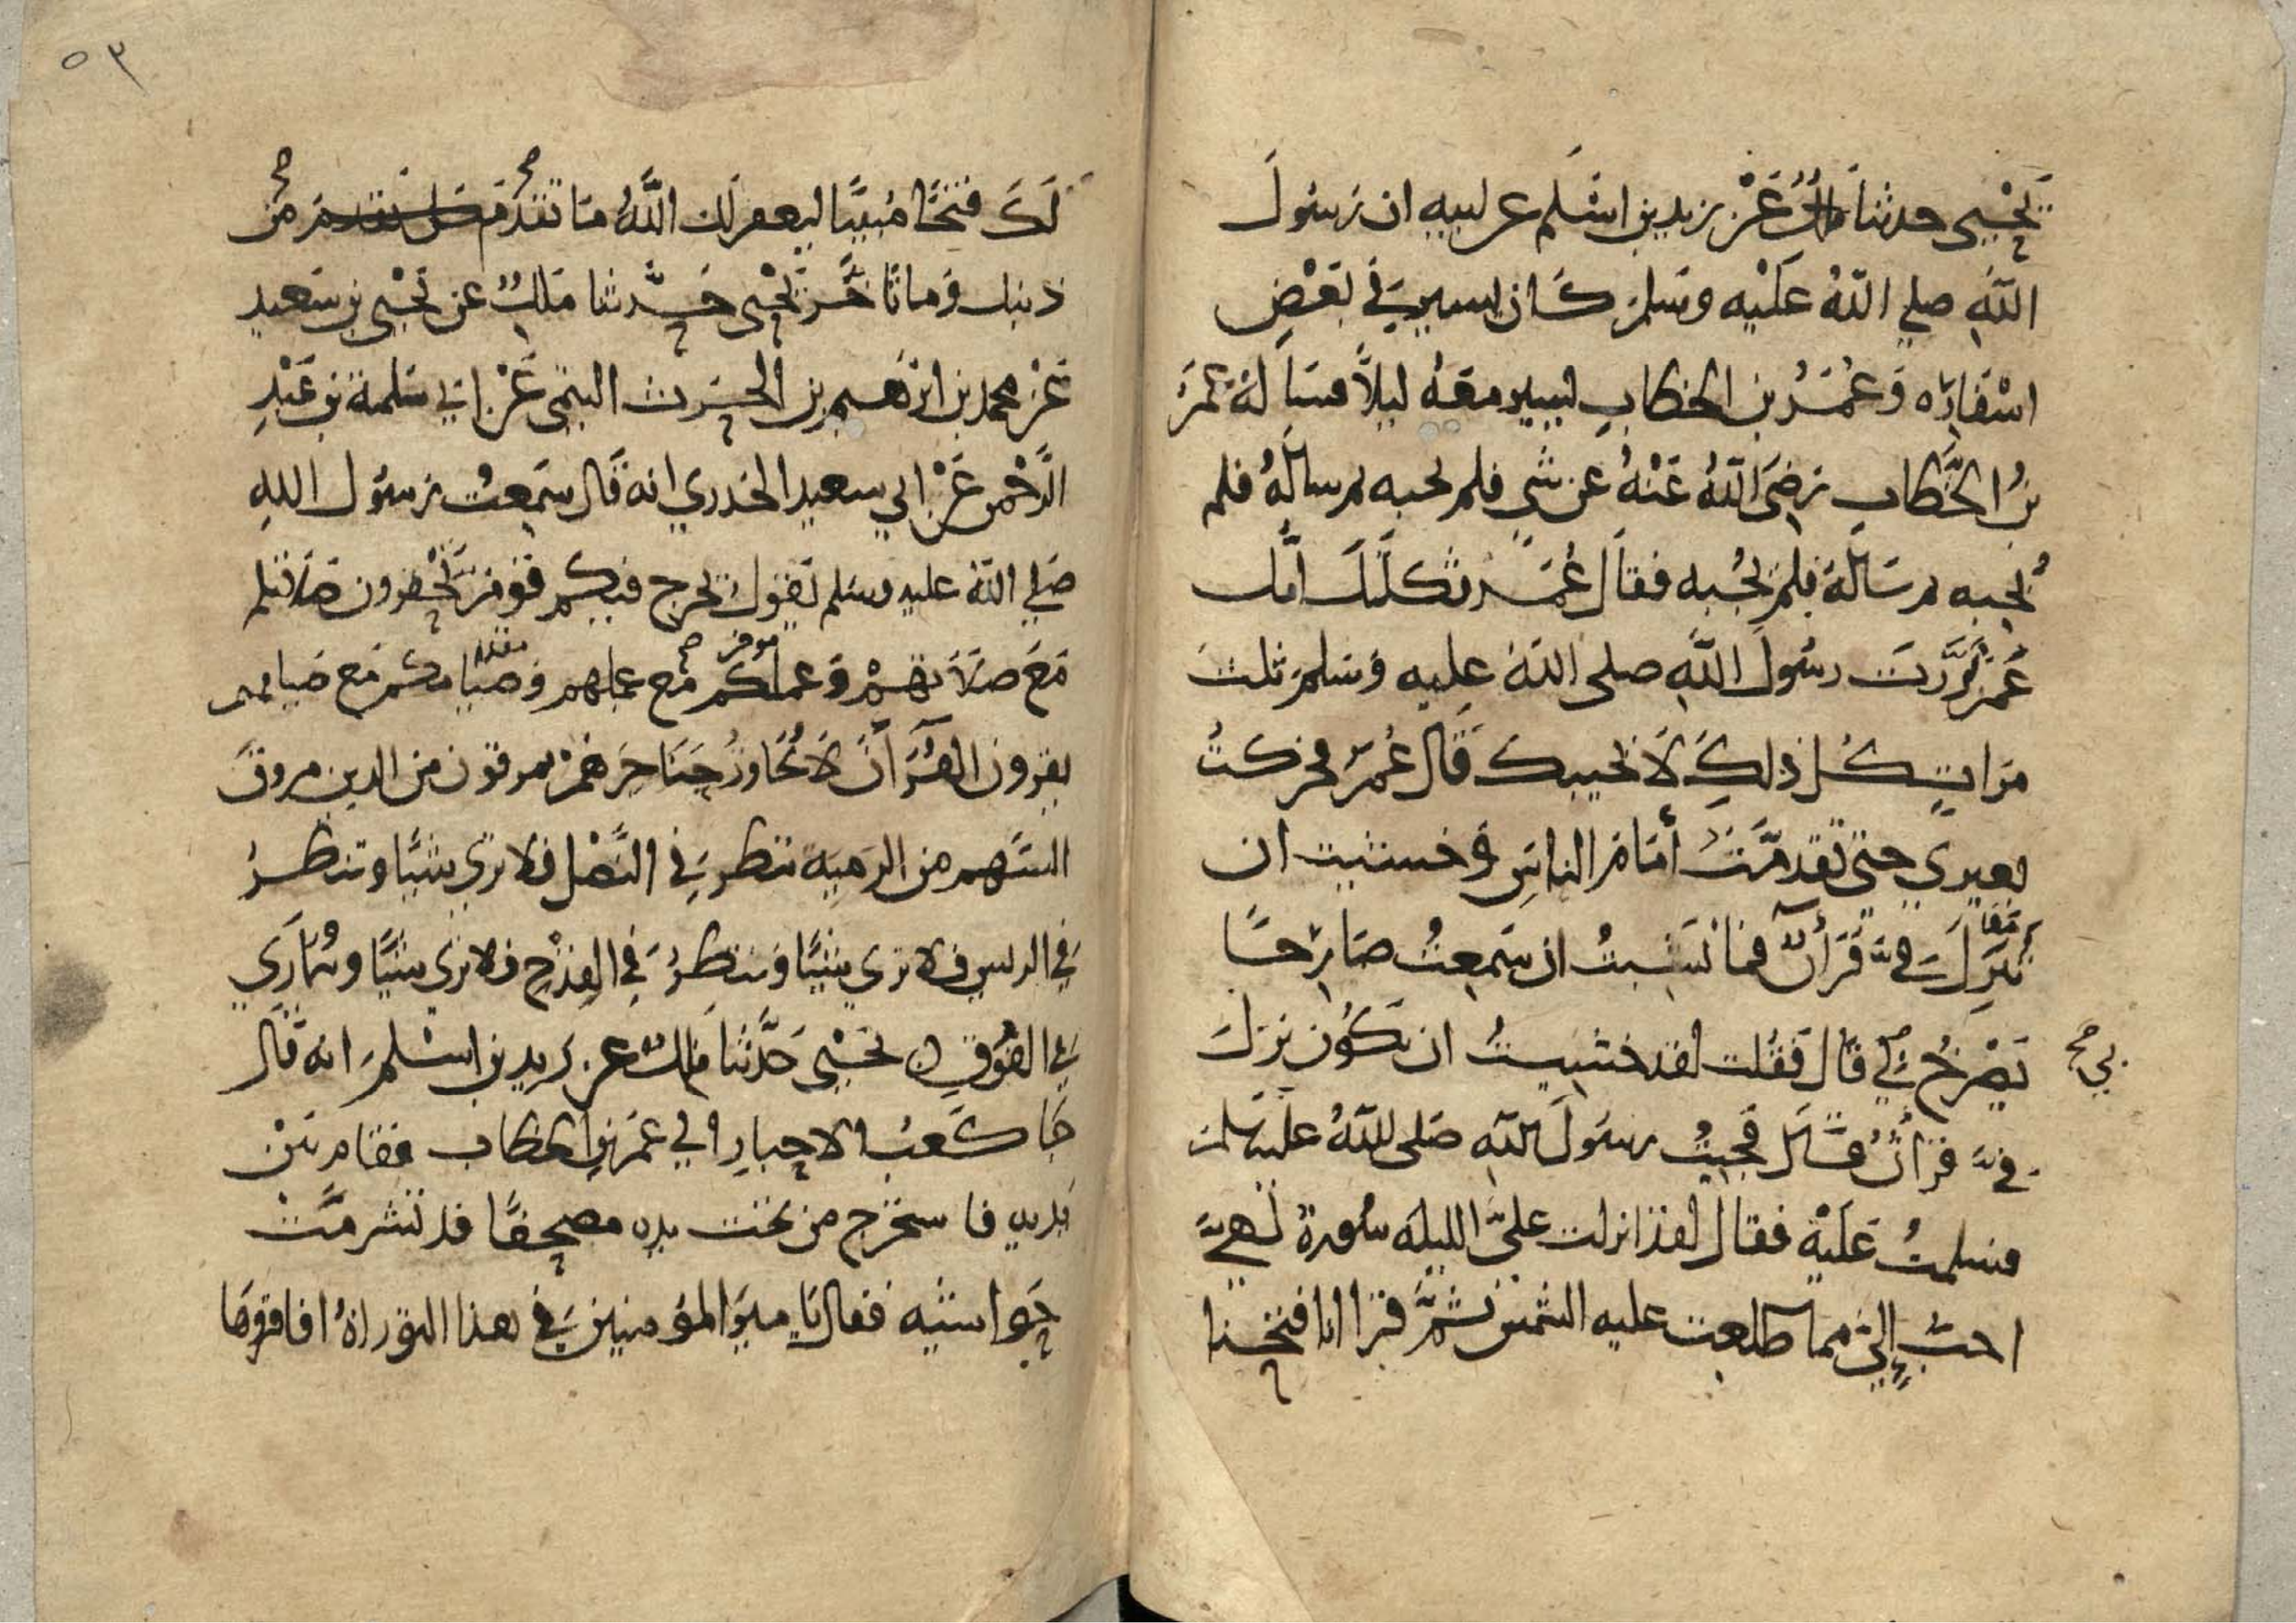 يَحْيى حدثنا مالكٌ عَنْ زيد بن اسْلم عن ابيه ان رَسُولَ
اللهِ صلى اللهُ عَلَيْه وسَلمَ كَان يسير في بَعْضِ
اسْفَارِه وَعُمَرُ بن الخطابِ يسير معَهُ ليلًا فسَاَلهُ عمَرُ
بنُ الخَطابِ رَضِيَ اللهُ عَنْهُ عن شيٍ فلم يجبه ثم ساَلهُ فلم
يُجبه ثم سَاَلَهُ فلمْ يُجبه فقاَل عُمَرُ ثكلتْكَ اُمُّك
عُمَرُ نَزَّرتَ رسُولَ اللهِ صلى اللهُ عليه وَسَلمَ ثلثَ
مَرَاتٍ كُل ذلِكَ لاَ يجيبك قَال عُمَرُ فحرَكتُ
بعيري حتى تقدمْتُ أمَامَ الناسِ وَخشيت ان
يُنزِلَ فِيَّ قَرَأنٌ فما نَشبْتُ ان سَمعتُ صَارِخًا
يَصْرخُ بي قال فَقُلت لقد خشيتُ ان يَكُون نزلَ
فيَّ قرأنٌ قَال فجيتُ رسُولَ اللهِ صَلى اللهُ عليه وسَلمَ
فسلمتُ عَليْه فقال لقد انزلت علىَّ الليلة سُورة لهيَ
احبُّ إليَّ مما طلعت عليه الشمْس ثمَّ قرا انا فتحنا
بي صح
٥٣
لَكَ فتحًا مُبينًا ليغفر لك اللَّهُ مَا تقدمَ من
ذنبك وَما تَاخَّرَ يَحْيى حَدَّثنا مَالكٌ عن يَحْيى بن سَعيدٍ
عَنْ محمد بن ابرهيم بن الحَرث التيمى عَنْ ابي سَلمة بن عَبْدِ
الرَّحْمن عَنْ ابي سعيد الخدري انه قَال سَمعتُ رسُول اللهِ
صَلى اللهُ عليه وسَلم يَقول يخرج فيكم قَومٌ يَحْقرون صَلاتكم
مَعَ صَلاَتهِمْ وَعملكم مَع عملهم وَصيَامكم مَع صيامهم
يقرون القُرَأنَ لاَ يُجَاوزُ حَنَاجرَهُمْ يمرقون من الدين مروقَ
السَّهم من الرَمية تنظر في النَّصْل فلا تري شيًا وتنظرُ
في الريش فلا تري شيًا وَتنظرُ في القِدْح فلا تري شيًا وتتمَارَي
في الفُوقِ يَحْيى حَدَّثنا مَالكٌ عن زيد بن اسْلمَ انه قَال
جَا كَعبُ الاحبارِ الي عمَر بن الخطاب فقام بَيْن
يَديه فاستخرج من تحت يده مصحفًا قد تَشرمَتْ
حَواشيه فقال يَا ميرَ المؤمنين في هذا التوراةُ افاقروهَا